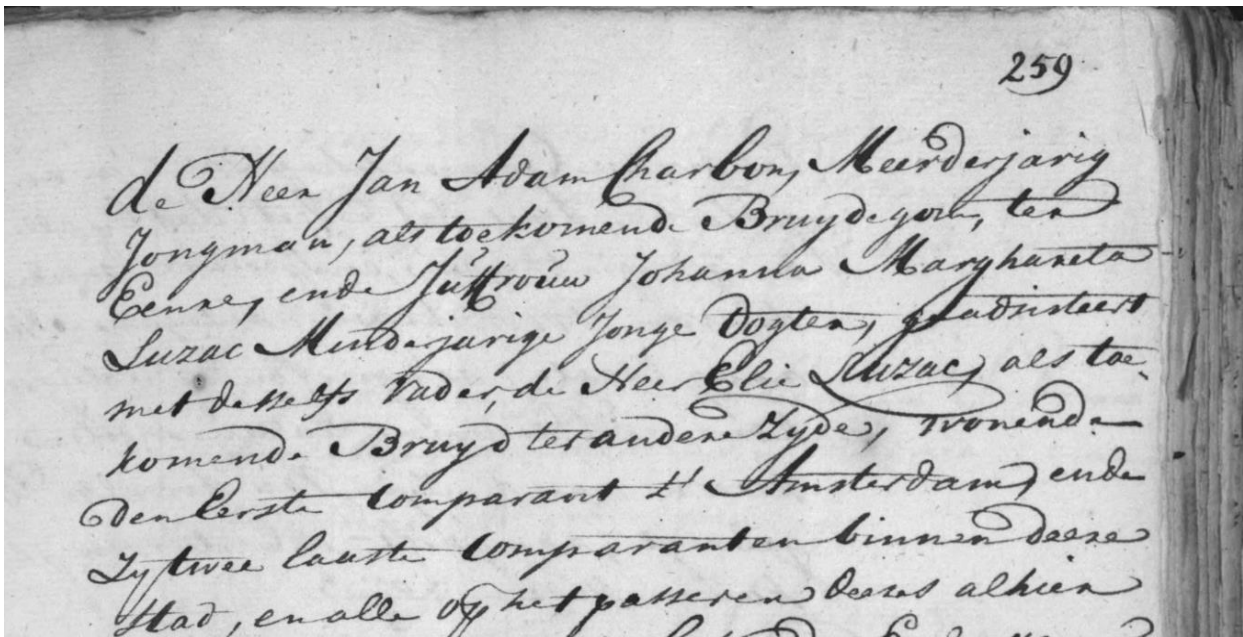 259
de Heer Jan Adam Charbon, Meerderjarig
Jongman, als toekomende Bruydegom, ter
Eenre, ende Juffrouw Johanna Marghareta
Luzac Minderjarige Jonge Dogter, geadsisteert
met desselfs Vader, de Heer Elie Luzac, als toe-
komende Bruyd ter andere Zyde, wonende
den Eerste Comparant t' Amsterdam, ende
Zy twee laaste Comparanten binnen deese
Stad, en alle op het passeren deeses alhier